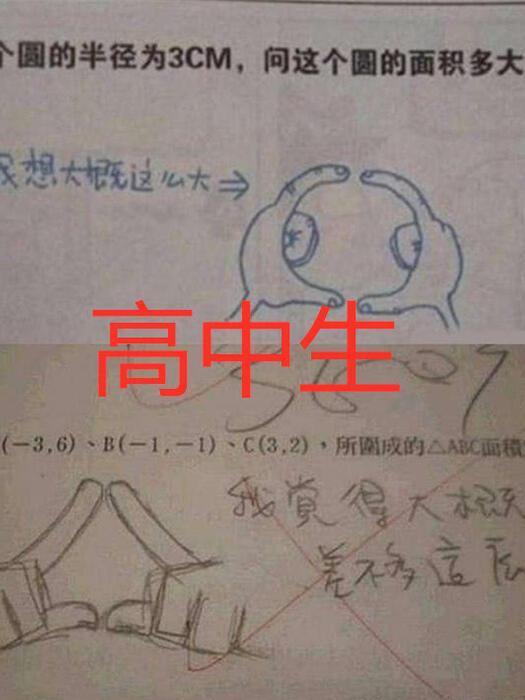 个圆的半径为3CM，问这个圆的面积多大
我想大概这么大⇒
高中生
(-3,6)、B(-1,-1)、C(3,2)，所圍成的△ABC面積
我覺得大概
差不多這